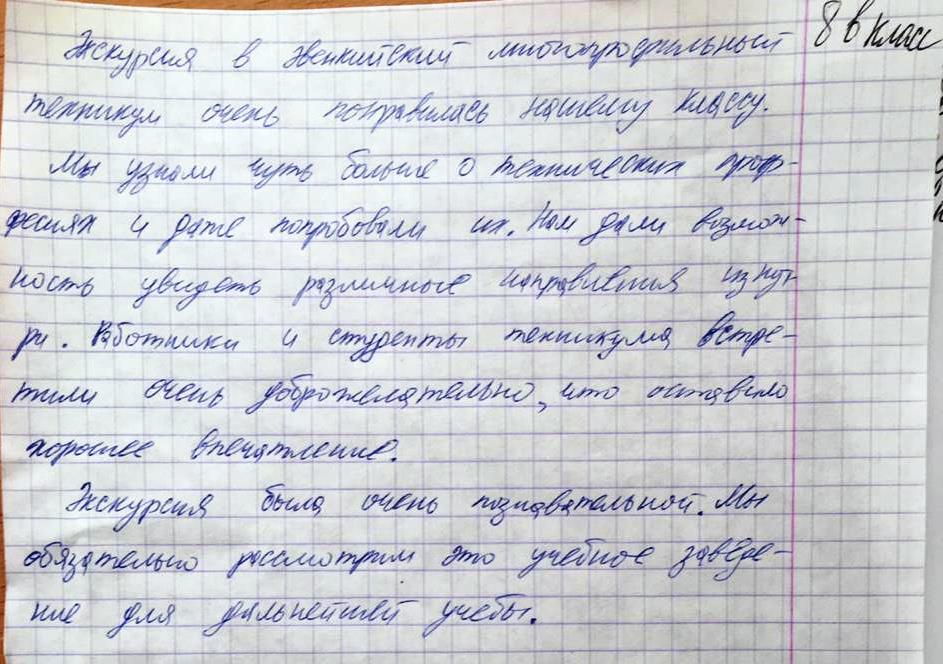 Экскурсия в Эвенкийский многопрофильный
8 в класс
техникум очень понравилась нашему классу.
Мы узнали чуть больше о технических проф-
фесиях и даже попробовали их. Нам дали возмож-
ность увидеть различные направления изнут-
ри. Работники и студенты техникума встре-
тили очень доброжелательно, что оставило
хорошее впечатление.
Экскурсия была очень познавательной. Мы
обязательно рассмотрим это учебное заведе-
ние для дальнейшей учебы.